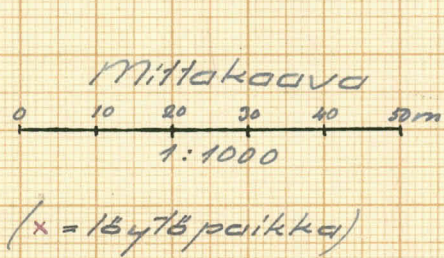 Mittakaava
0 10 20 30 40 50 m
1:1000
(x = löytöpaikka)